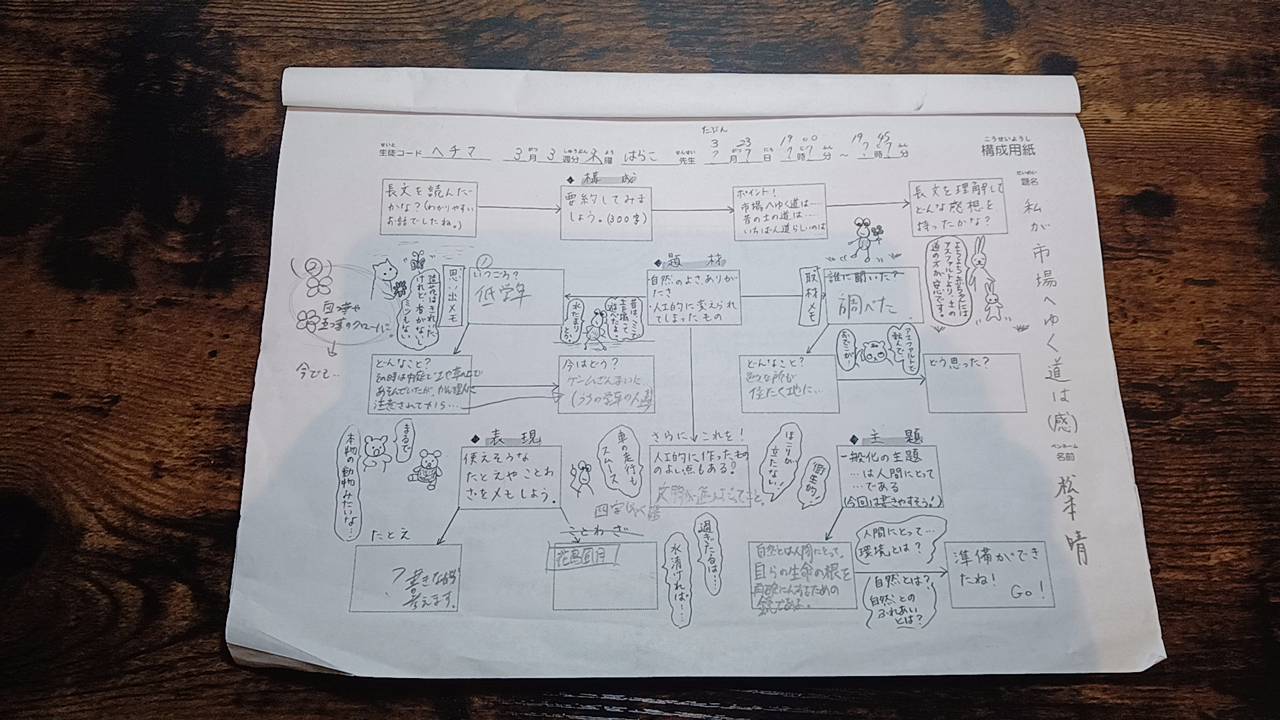 たぶん
せいと
生徒コード ヘチマ 3月 3週分 木曜 はらこ 先生 3月23日 19時00分 ～ 19時45分
こうせいようし
構成用紙
だいめい
題名 私が市場へゆく道は(感)
ペンネーム
名前 松本 晴
◆構成
長文を読んだ
かな？(わかりやすい
お話でしたね。)
要約してみま
しょう。(300字)
ポイント！
市場へゆく道は…
昔の土の道は…
いちばん道らしいのは
長文を理解して
どんな感想を
持ったかな？
◆題材
自然のよさ、ありが
たさ
・人工的に変えられ
てしまったもの
思い出メモ
①
いつごろ？
低学年
取材メモ
誰に聞いた？
調べた
よちよち歩きの子には
アスファルトより、土の
道の方が安心です。
白つめや
のクローバー
今でも…
どんなこと？
注意されてから…
今はどう？
ゲームざんまいに
(うちの学年の人達)
水たまり
どんなこと？
色々な所が
住たく地に…
アスファルトで
転んで、
おでこが
どう思った？
まるで
本物の動物みたいな…
◆表現
使えそうな
たとえやことわ
ざをメモしよう。
たとえ
？書きながら
考えます。
四字じゅく語
ことわざ
花鳥風月
車の走行も
スムーズ
さらにこれを！
人工的に作ったもの
のよい点もある？
文明が進んだってこと。
ほこりが
立たない！
衛生的！
過ぎたるは…
水清ければ…
◆主題
一般化の主題
…は人間にとって
…である
(今回は書きやすそう！)
自然とは人間にとって、
自らの生命の根を
人間にとって…
環境とは？
自然とは？
自然との
ふれあい
とは？
準備ができ
たね！
Go！